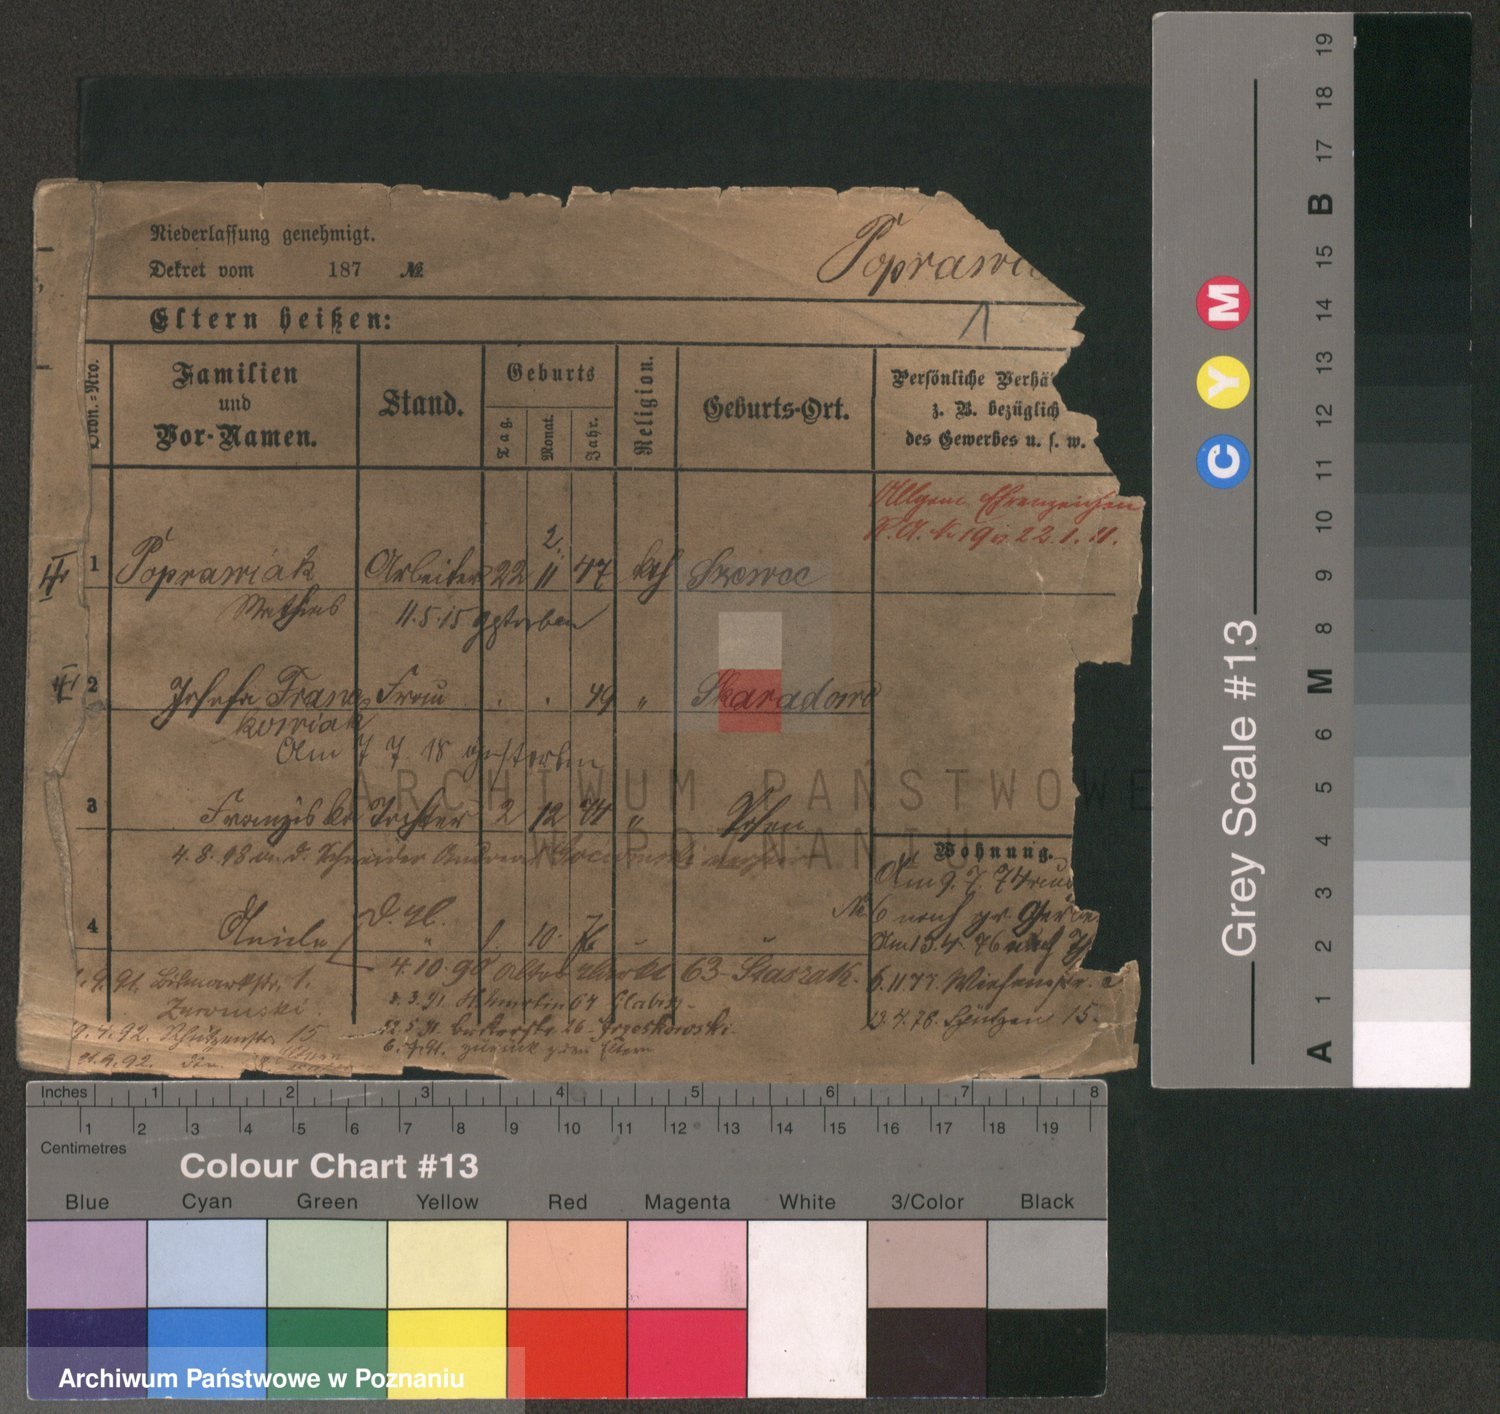 Niederlassung genehmigt.
Dekret vom 187 №
Poprawia
Eltern heißen:
Ordn.-Nro.
Familien
und
Vor-Namen.
Stand.
Geburts
Tag.
Monat.
Jahr.
Religion.
Geburts-Ort.
Persönliche Verhä
z. B. bezüglich
des Gewerbes u. s. w.
Allgem. Ehrenzeichen
22. 1. 11.
2.
1 Poprawiak Arbeiter 22 11 47 kath Szewce
Mathias 11.5.15 gestorben
2 Josefa Franc Frau 49 " Skaradowo
kowiak
Am 7 7. 18 gestorben
3 Franziska Tochter 2 12 74 " Posen
4.8.98 an d. Schneider
4 " 1. 10.
4.10.90 alter Markt 63 Staszak.
1.9.91. Bismarkstr. 1.
Zuromski.
9.4.92. Schützenstr. 15
21.9.92.
3.3.91. St. Martin 64
22.5.91. Bäckerstr. 26 - Grzeskowski
zurück zu den Eltern
Wohnung.
Am 9. 7. 74
№ 6 nach gr. Gerbe
Am 13.4. 76 nach
6.11.77. Wiesenstr.
13.4.78. Schützen 15.
ARCHIWUM PAŃSTWOWE
W POZNANIU
Grey Scale #13
C Y M
A 1 2 3 4 5 6 M 8 9 10 11 12 13 14 15 B 17 18 19
Inches 1 2 3 4 5 6 7 8
1 2 3 4 5 6 7 8 9 10 11 12 13 14 15 16 17 18 19
Centimetres
Colour Chart #13
Blue Cyan Green Yellow Red Magenta White 3/Color Black
Archiwum Państwowe w Poznaniu